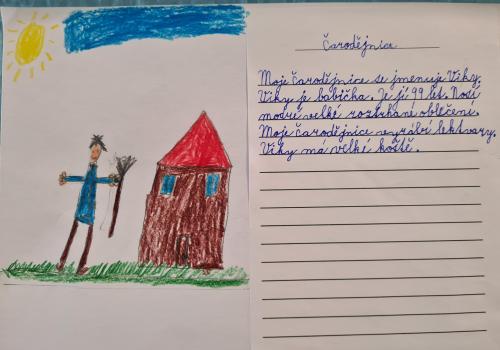 Čarodějnice
Moje čarodějnice se jmenuje Viky.
Viky je babička. Je jí 99 let. Nosí
modré velké roztrhané oblečení.
Moje čarodějnice vyrábí lektvary.
Viky má velké koště.